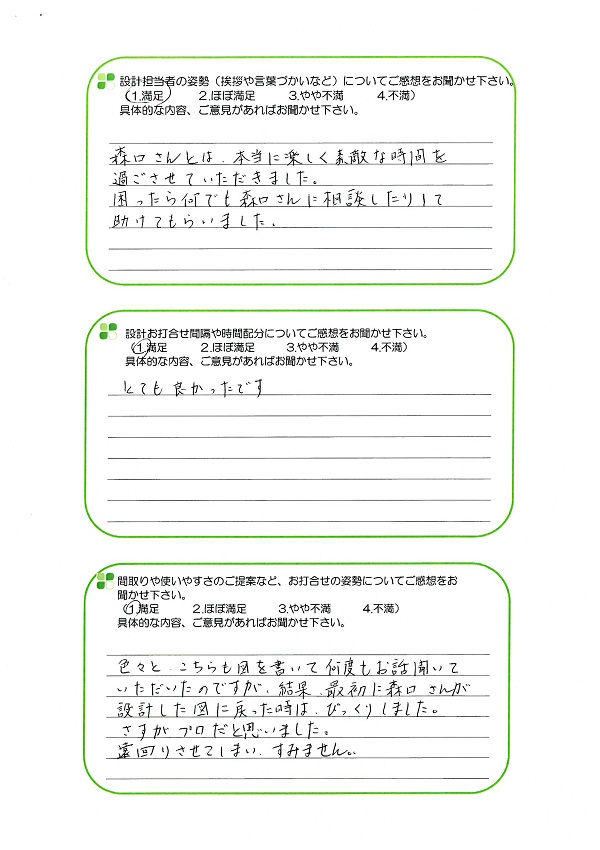 設計担当者の姿勢（挨拶や言葉づかいなど）についてご感想をお聞かせ下さい。
（1.満足　2.ほぼ満足　3.やや不満　4.不満）
具体的な内容、ご意見があればお聞かせ下さい。
森口さんとは、本当に楽しく素敵な時間を
過ごさせていただきました。
困ったら何でも森口さんに相談したりして
助けてもらいました。
設計お打合せ間隔や時間配分についてご感想をお聞かせ下さい。
（1.満足　2.ほぼ満足　3.やや不満　4.不満）
具体的な内容、ご意見があればお聞かせ下さい。
とても良かったです
間取りや使いやすさのご提案など、お打合せの姿勢についてご感想をお
聞かせ下さい。
（1.満足　2.ほぼ満足　3.やや不満　4.不満）
具体的な内容、ご意見があればお聞かせ下さい。
色々と、こちらも図を書いて何度もお話聞いて
いただいたのですが、結果、最初に森口さんが
設計した図に戻った時は、びっくりしました。
さすがプロだと思いました。
遠回りさせてしまい、すみません。